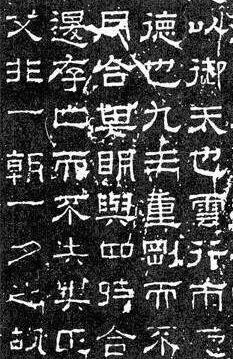 以御天也雲行雨施
德也九三重剛而不
月合其明與四時合
退存亡而不失其
父非一朝一夕之故